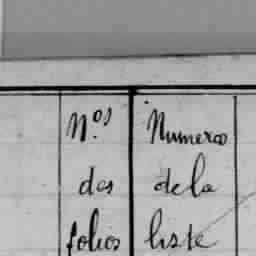 Nos
des
folios
Numeros
de la
liste